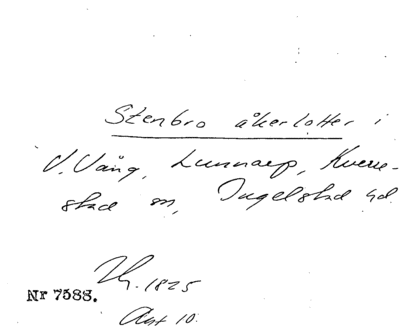 Stenbro åkerlotter i
V. Vång, Lunnarp, Kverre-
stad sn, Ingelstad hd.
1825
Nr 7588.
Akt 10.